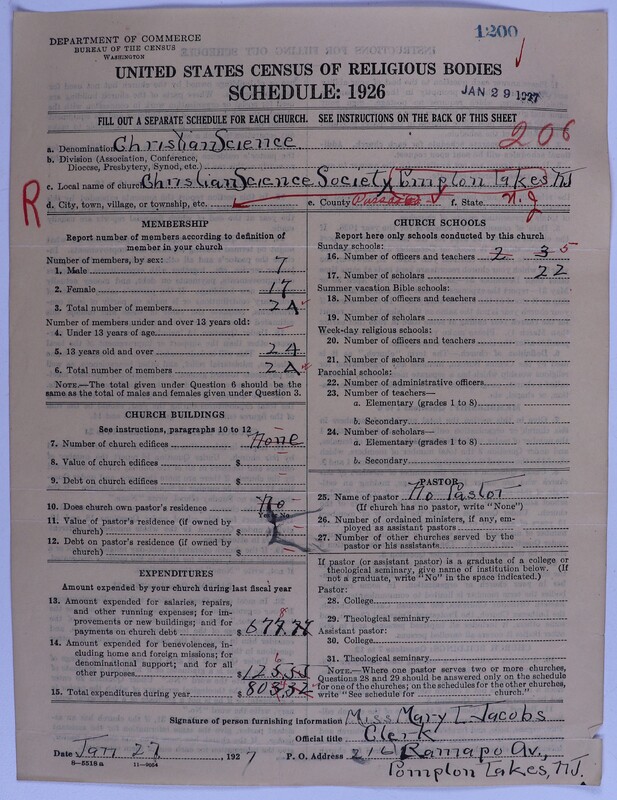 1200
DEPARTMENT OF COMMERCE
BUREAU OF THE CENSUS
WASHINGTON
UNITED STATES CENSUS OF RELIGIOUS BODIES
SCHEDULE: 1926
JAN 29 1927
FILL OUT A SEPARATE SCHEDULE FOR EACH CHURCH. SEE INSTRUCTIONS ON THE BACK OF THIS SHEET
206
a. Denomination Christian Science
b. Division (Association, Conference,
Diocese, Presbytery, Synod, etc.)
c. Local name of church Christian Science Society, Pompton Lakes NJ
R
d. City, town, village, or township, etc. e. County Passaic f. State N.J
MEMBERSHIP
Report number of members according to definition of
member in your church
Number of members, by sex:
1. Male 7
2. Female 17
3. Total number of members 24
Number of members under and over 13 years old:
4. Under 13 years of age
5. 13 years old and over 24
6. Total number of members 24
NOTE.—The total given under Question 6 should be the
same as the total of males and females given under Question 3.
CHURCH BUILDINGS
See instructions, paragraphs 10 to 12
7. Number of church edifices None
8. Value of church edifices $
9. Debt on church edifices $
10. Does church own pastor's residence No
Yes or No
11. Value of pastor's residence (if owned by
church) $
12. Debt on pastor's residence (if owned by
church) $
EXPENDITURES
Amount expended by your church during last fiscal year
13. Amount expended for salaries, repairs,
and other running expenses; for im-
provements or new buildings; and for
payments on church debt $ 8
14. Amount expended for benevolences, in-
cluding home and foreign missions; for
denominational support; and for all
other purposes $ 6
15. Total expenditures during year $
CHURCH SCHOOLS
Report here only schools conducted by this church
Sunday schools:
16. Number of officers and teachers 2 3 5
17. Number of scholars 22
Summer vacation Bible schools:
18. Number of officers and teachers
19. Number of scholars
Week-day religious schools:
20. Number of officers and teachers
21. Number of scholars
Parochial schools:
22. Number of administrative officers
23. Number of teachers—
a. Elementary (grades 1 to 8)
b. Secondary
24. Number of scholars—
a. Elementary (grades 1 to 8)
b. Secondary
PASTOR
25. Name of pastor No Pastor
(If church has no pastor, write "None")
26. Number of ordained ministers, if any, em-
ployed as assistant pastors
27. Number of other churches served by the
pastor or his assistants
If pastor (or assistant pastor) is a graduate of a college or
theological seminary, give name of institution below. (If
not a graduate, write "No" in the space indicated.)
Pastor:
28. College
29. Theological seminary
Assistant pastor:
30. College
31. Theological seminary
NOTE.—Where one pastor serves two or more churches,
Questions 28 and 29 should be answered only on the schedule
for one of the churches; on the schedules for the other churches,
write "See schedule for church."
Signature of person furnishing information Miss Mary L. Jacobs
Official title Clerk
Date Jan 27, 1927 P. O. Address 216 Ramapo Av.,
Pompton Lakes, NJ.
8-5518 a 11-9064